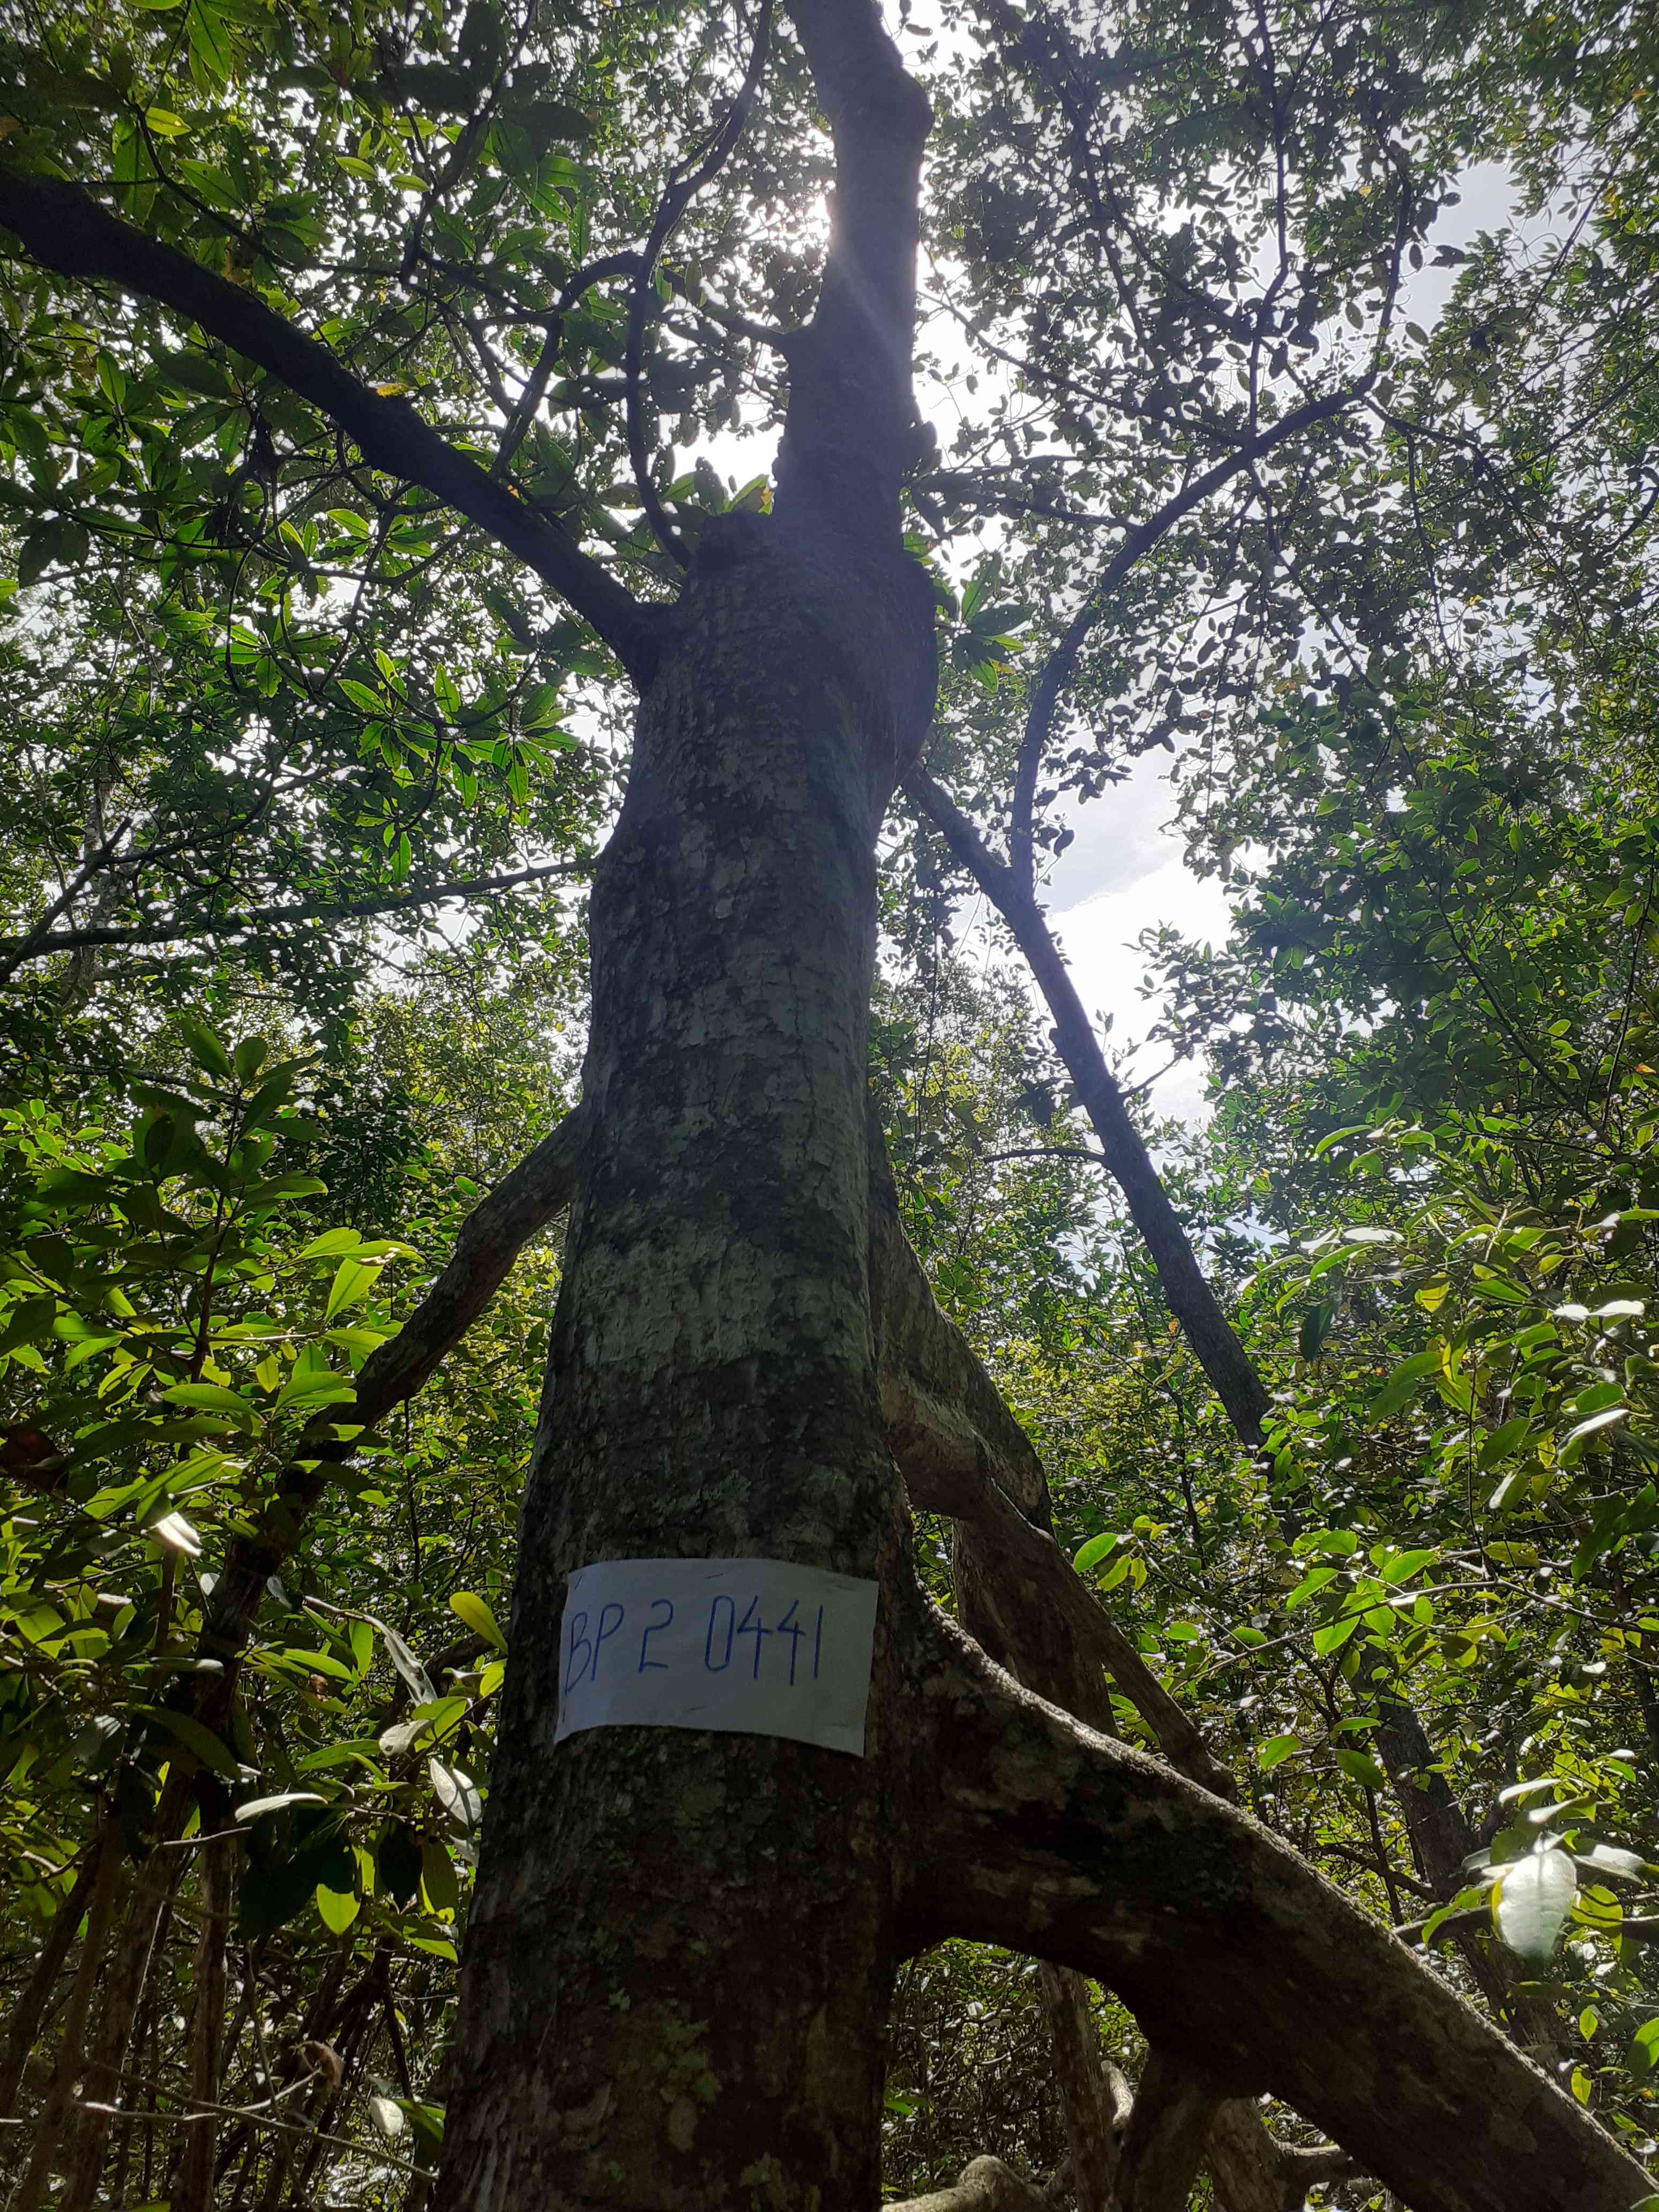 BP 2 0441